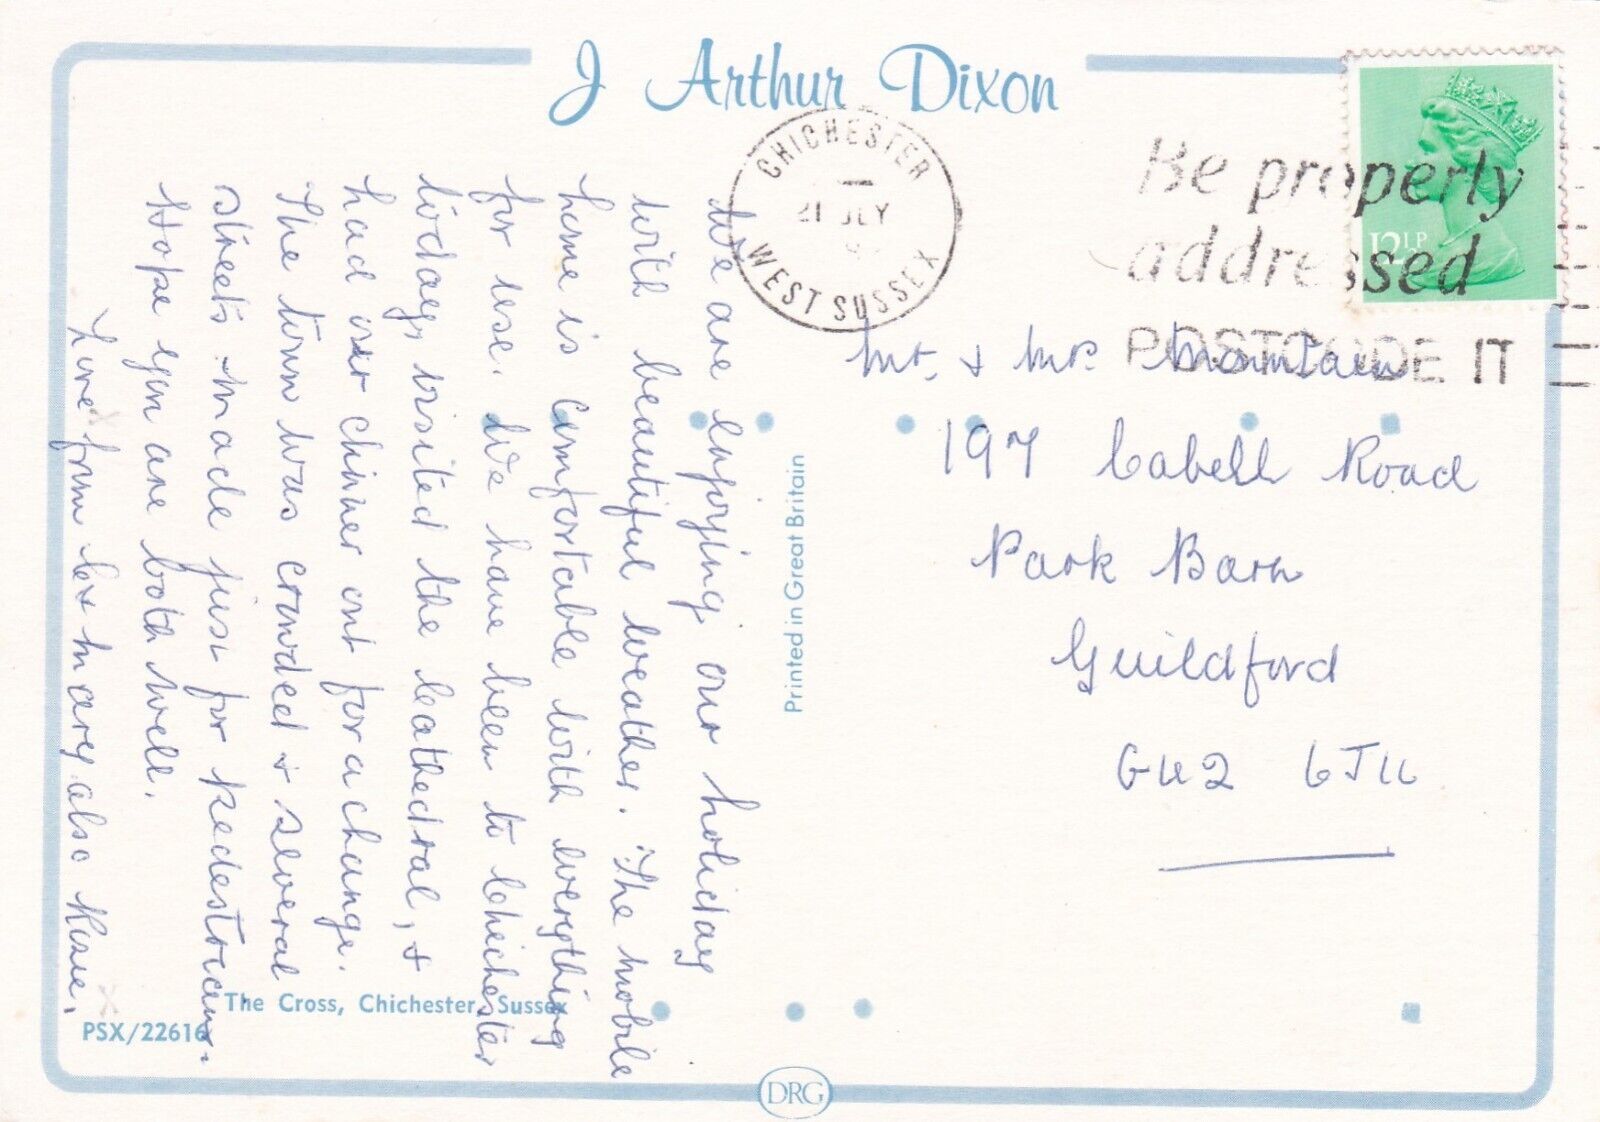 J Arthur Dixon
CHICHESTER
21 JLY
WEST SUSSEX
Be properly
addressed
POSTCODE IT
12½P
We are enjoying our holiday
with beautiful weather. The mobile
home is comfortable with everything
for use. We have been to Chichester
today, visited the Cathedral, &
had our dinner out for a change.
The town was crowded & several
streets made just for pedestrians.
Hope you are both well.
Love from & Mary also Rose.
Mr. & Mrs. Mountain
197 Cabell Road
Park Barn
Guildford
GU2 6JU
Printed in Great Britain
The Cross, Chichester, Sussex
PSX/22616
DRG